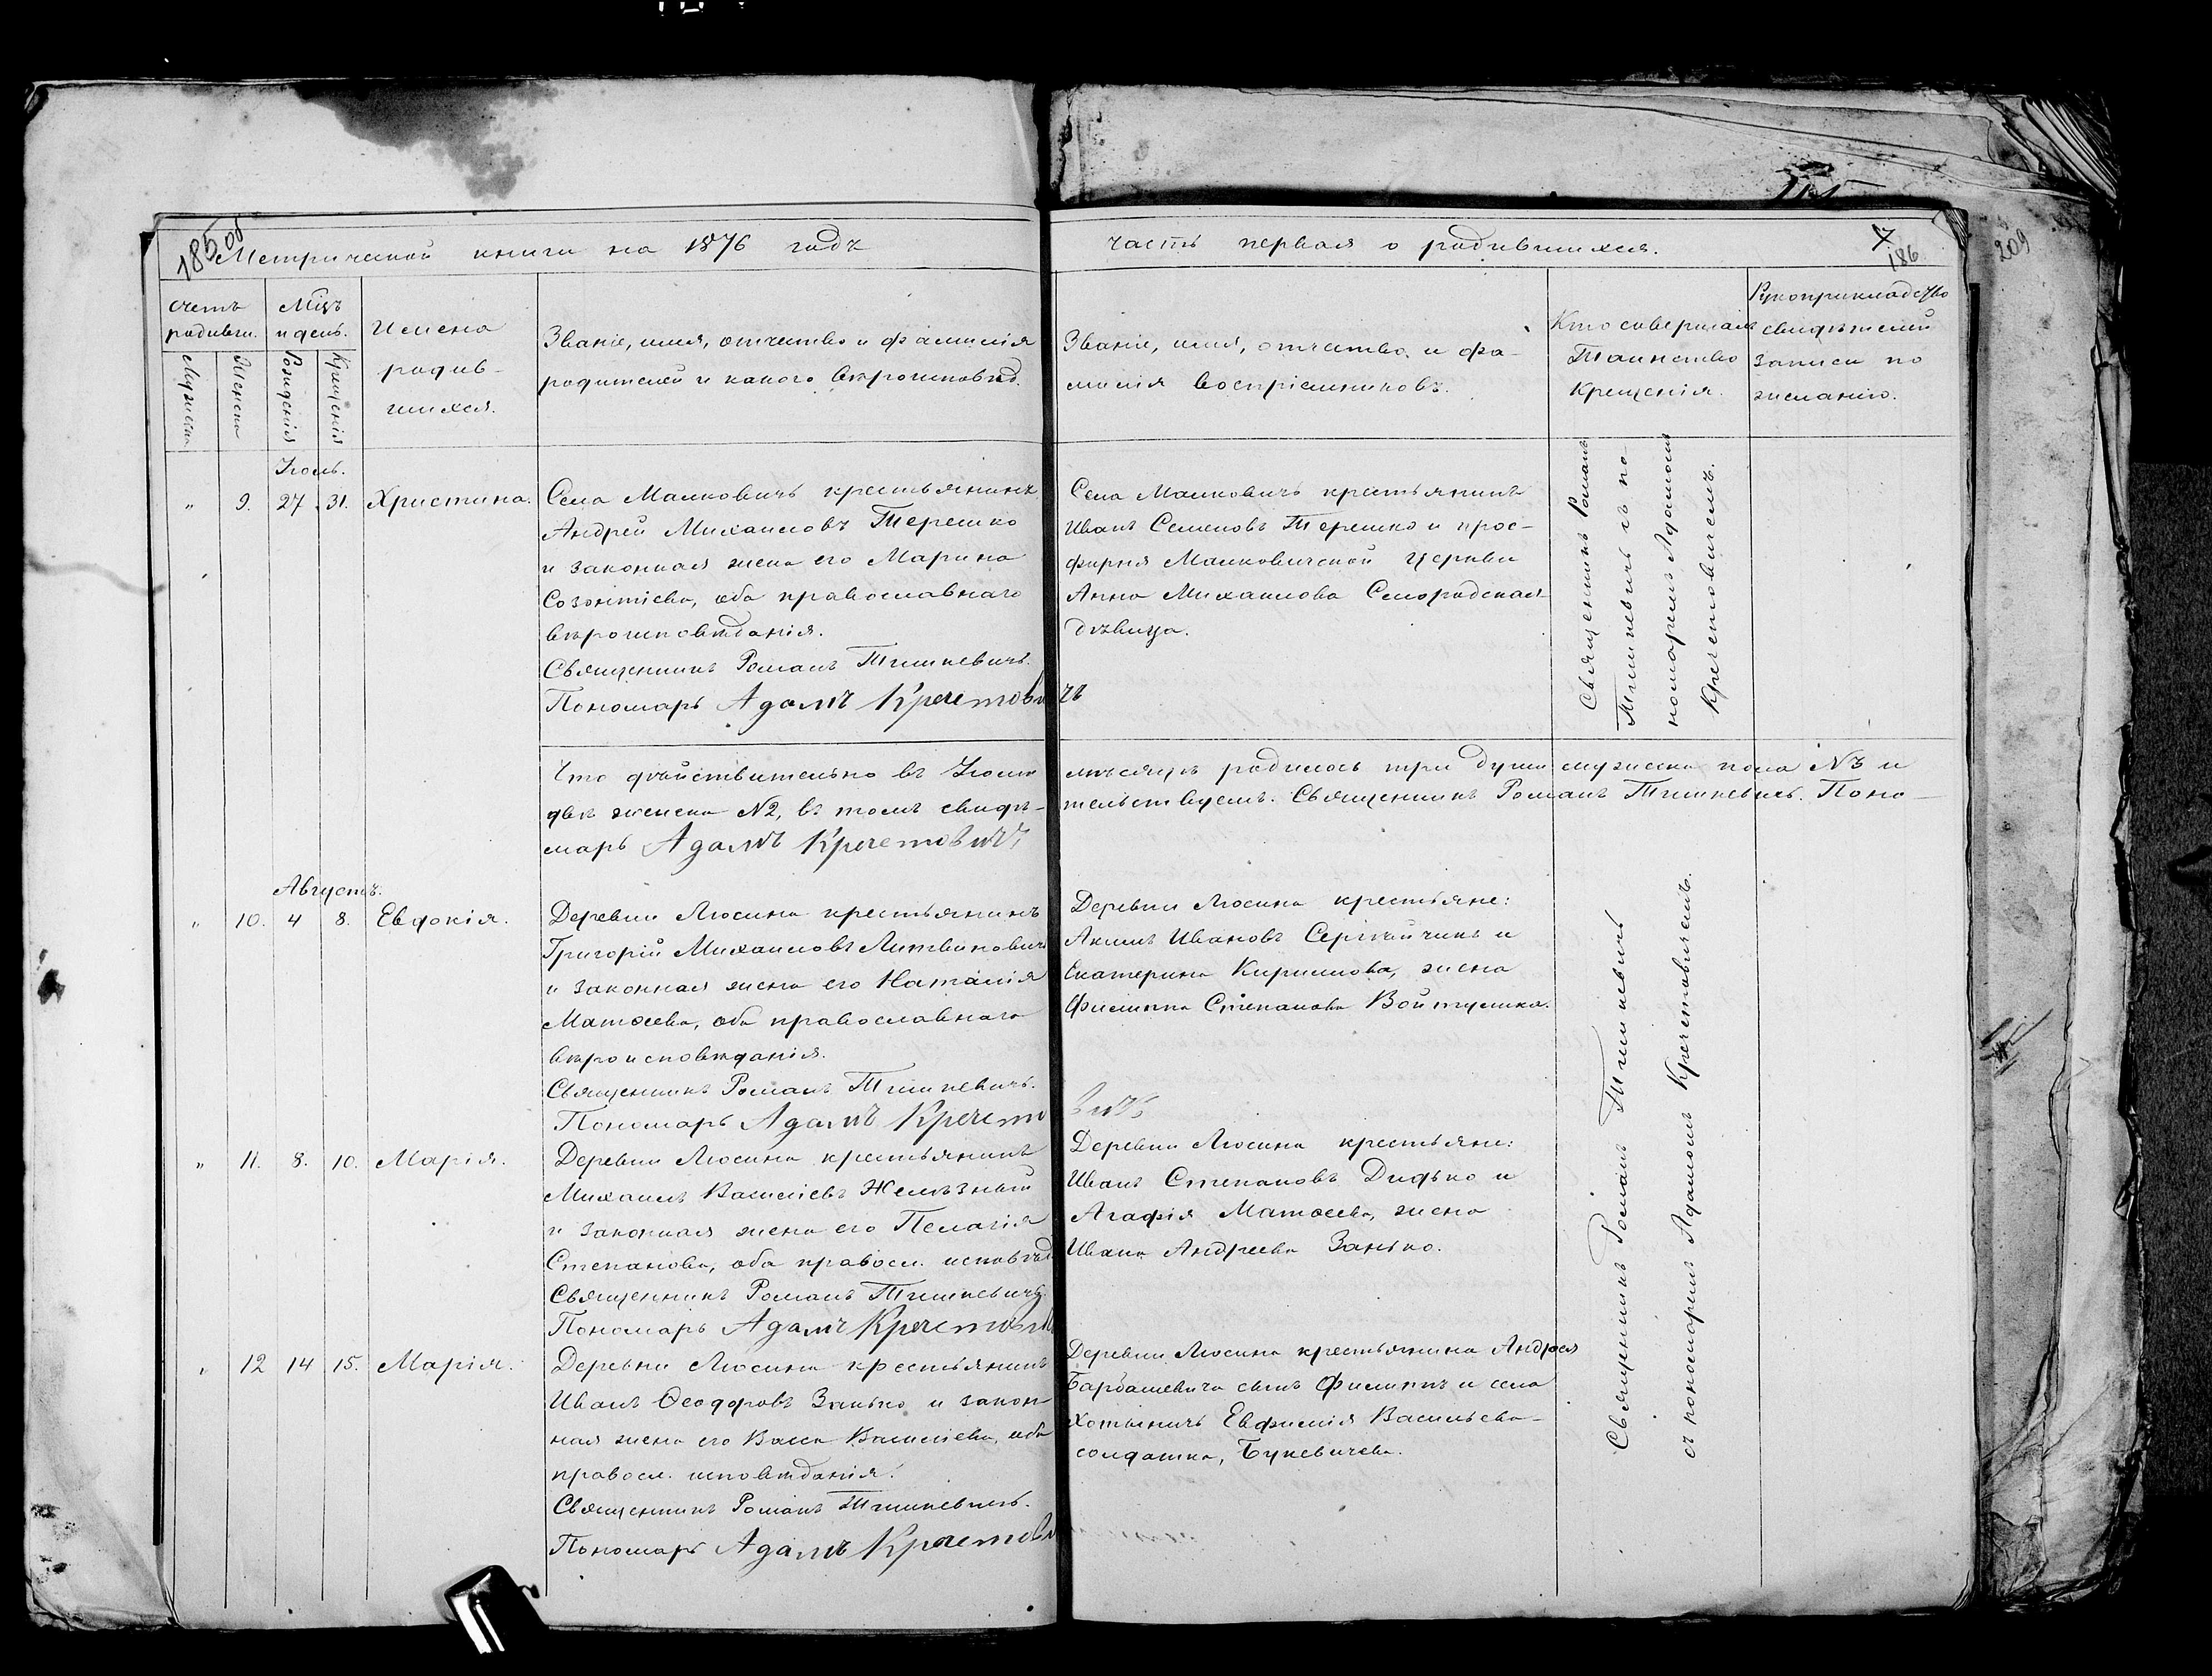 185 об
Метрической книги на 1876 годъ
часть первая о родившихся.
7
186
209
Счетъ родивш.
Мужеска
Женска
Мѣц. и день.
Рожденія
Крещенія
Имена
родив-
шихся.
Званіе, имя, отчество и фамилія
родителей и какого вѣроисповѣд.
Званіе, имя, отчество и фа-
милія воспріемниковъ.
Кто совершалъ
Таинство
крещенія.
Рукоприкладство
свидѣтелей
записи по
желанію.
Іюль.
" 9. 27 31. Христина.
Села Малковичъ крестьянинъ
Андрей Михаиловъ Терешко
и законная жена его Марина
Созонтіева, оба православнаго
вѣроисповѣданія.
Священникъ Романъ Тишкевичъ.
Пономарь Адамъ Кречетовичъ
Села Малковичъ крестьянинъ
Иванъ Семеновъ Терешко и прос-
фирня Малковичской церкви
Анна Михаилова Селорадская
дѣвица.
Священникъ Романъ
Тишкевичъ съ по-
номаремъ Адамомъ
Кречетовичемъ.
Что дѣйствительно въ Іюлѣ мѣсяцѣ родилось три души мужеска пола №3 и
двѣ женска №2, въ томъ свидѣ-тельствуемъ. Священникъ Романъ Тишкевичъ. Поно-
марь Адамъ Кречетовичъ
Августъ.
" 10. 4 8. Евдокія.
Деревни Люсина крестьянинъ
Григорій Михаиловъ Литвиновичъ
и законная жена его Наталія
Матѳеева, оба православнаго
вѣроисповѣданія.
Священникъ Романъ Тишкевичъ.
Пономарь Адамъ Кречетовичъ
Деревни Люсина крестьяне:
Акимъ Ивановъ Сергѣйчикъ и
Екатерина Кириллова, жена
Филиппа Степанова Войтушка.
" 11. 8. 10. Марія.
Деревни Люсина крестьянинъ
Михаилъ Василіевъ Желѣзный
и законная жена его Пелагія
Степанова, оба правосл. исповѣд.
Священникъ Романъ Тишкевичъ
Пономарь Адамъ Кречетови
Деревни Люсина крестьяне:
Иванъ Степановъ Дидько и
Агафія Матѳеева, жена
Ивана Андреева Занько.
" 12 14 15. Марія.
Деревни Люсина крестьянинъ
Иванъ Ѳеодоровъ Занько и закон-
ная жена его Васса Василіева, оба
правосл. исповѣданія.
Священникъ Романъ Тишкевичъ.
Пономарь Адамъ Кречетови
Деревни Люсина крестьянина Андрея
Барбашевича сынъ Филиппъ и села
Хотыничъ Евфимія Васильева-
солдатка, Букевичева.
Священникъ Романъ Тишкевичъ
съ пономаремъ Адамомъ Кречетовичемъ.